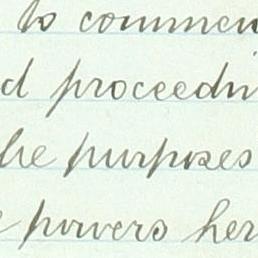 to commen
d proceedin
he purposes
powers her